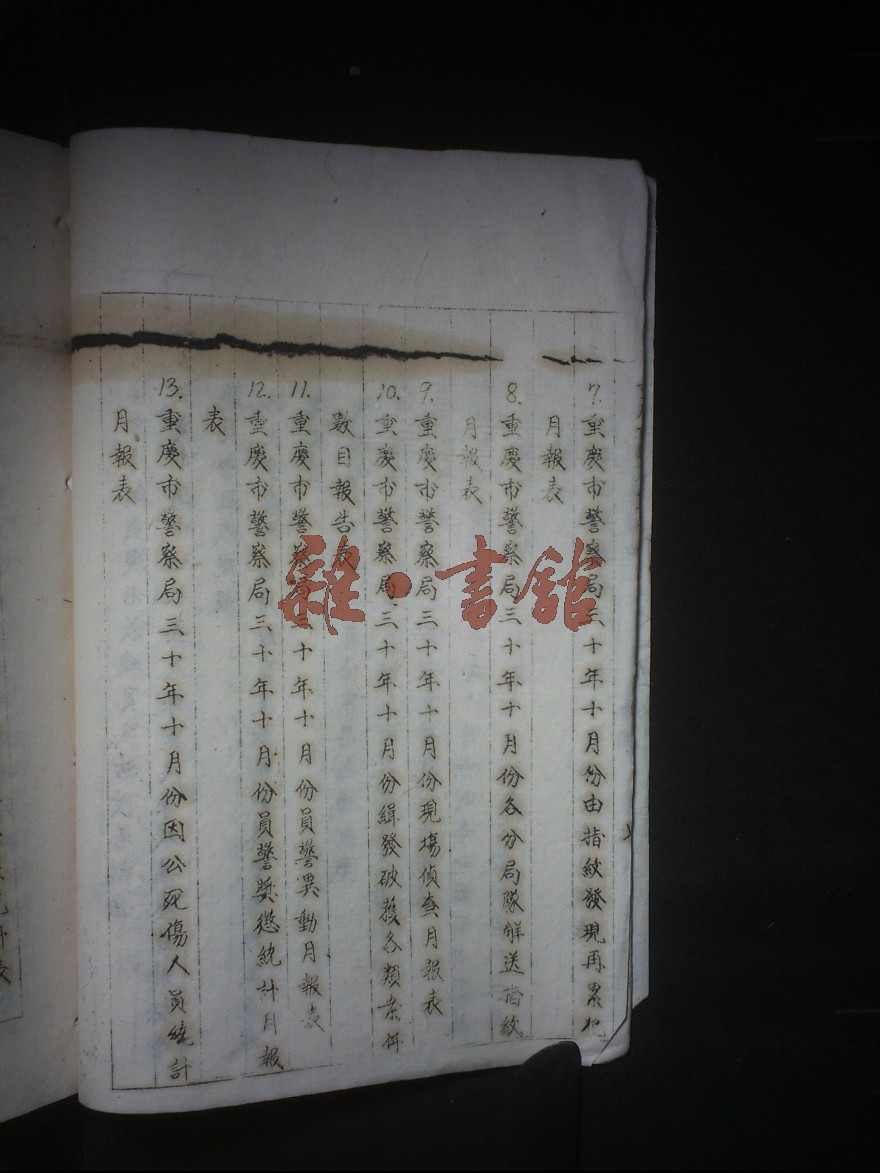 7.重慶市警察局三十年十月份由指紋發現再累犯
月報表
8.重慶市警察局三十年十月份各分局隊解送指紋
月報表
9.重慶市警察局三十年十月份現場偵查月報表
10.重慶市警察局三十年十月份緝發破獲各類案件
數目報告表
11.重慶市警察局三十年十月份員警異動月報表
12.重慶市警察局三十年十月份員警獎懲統計月報
表
13.重慶市警察局三十年十月份因公死傷人員統計
月報表
雜·書館